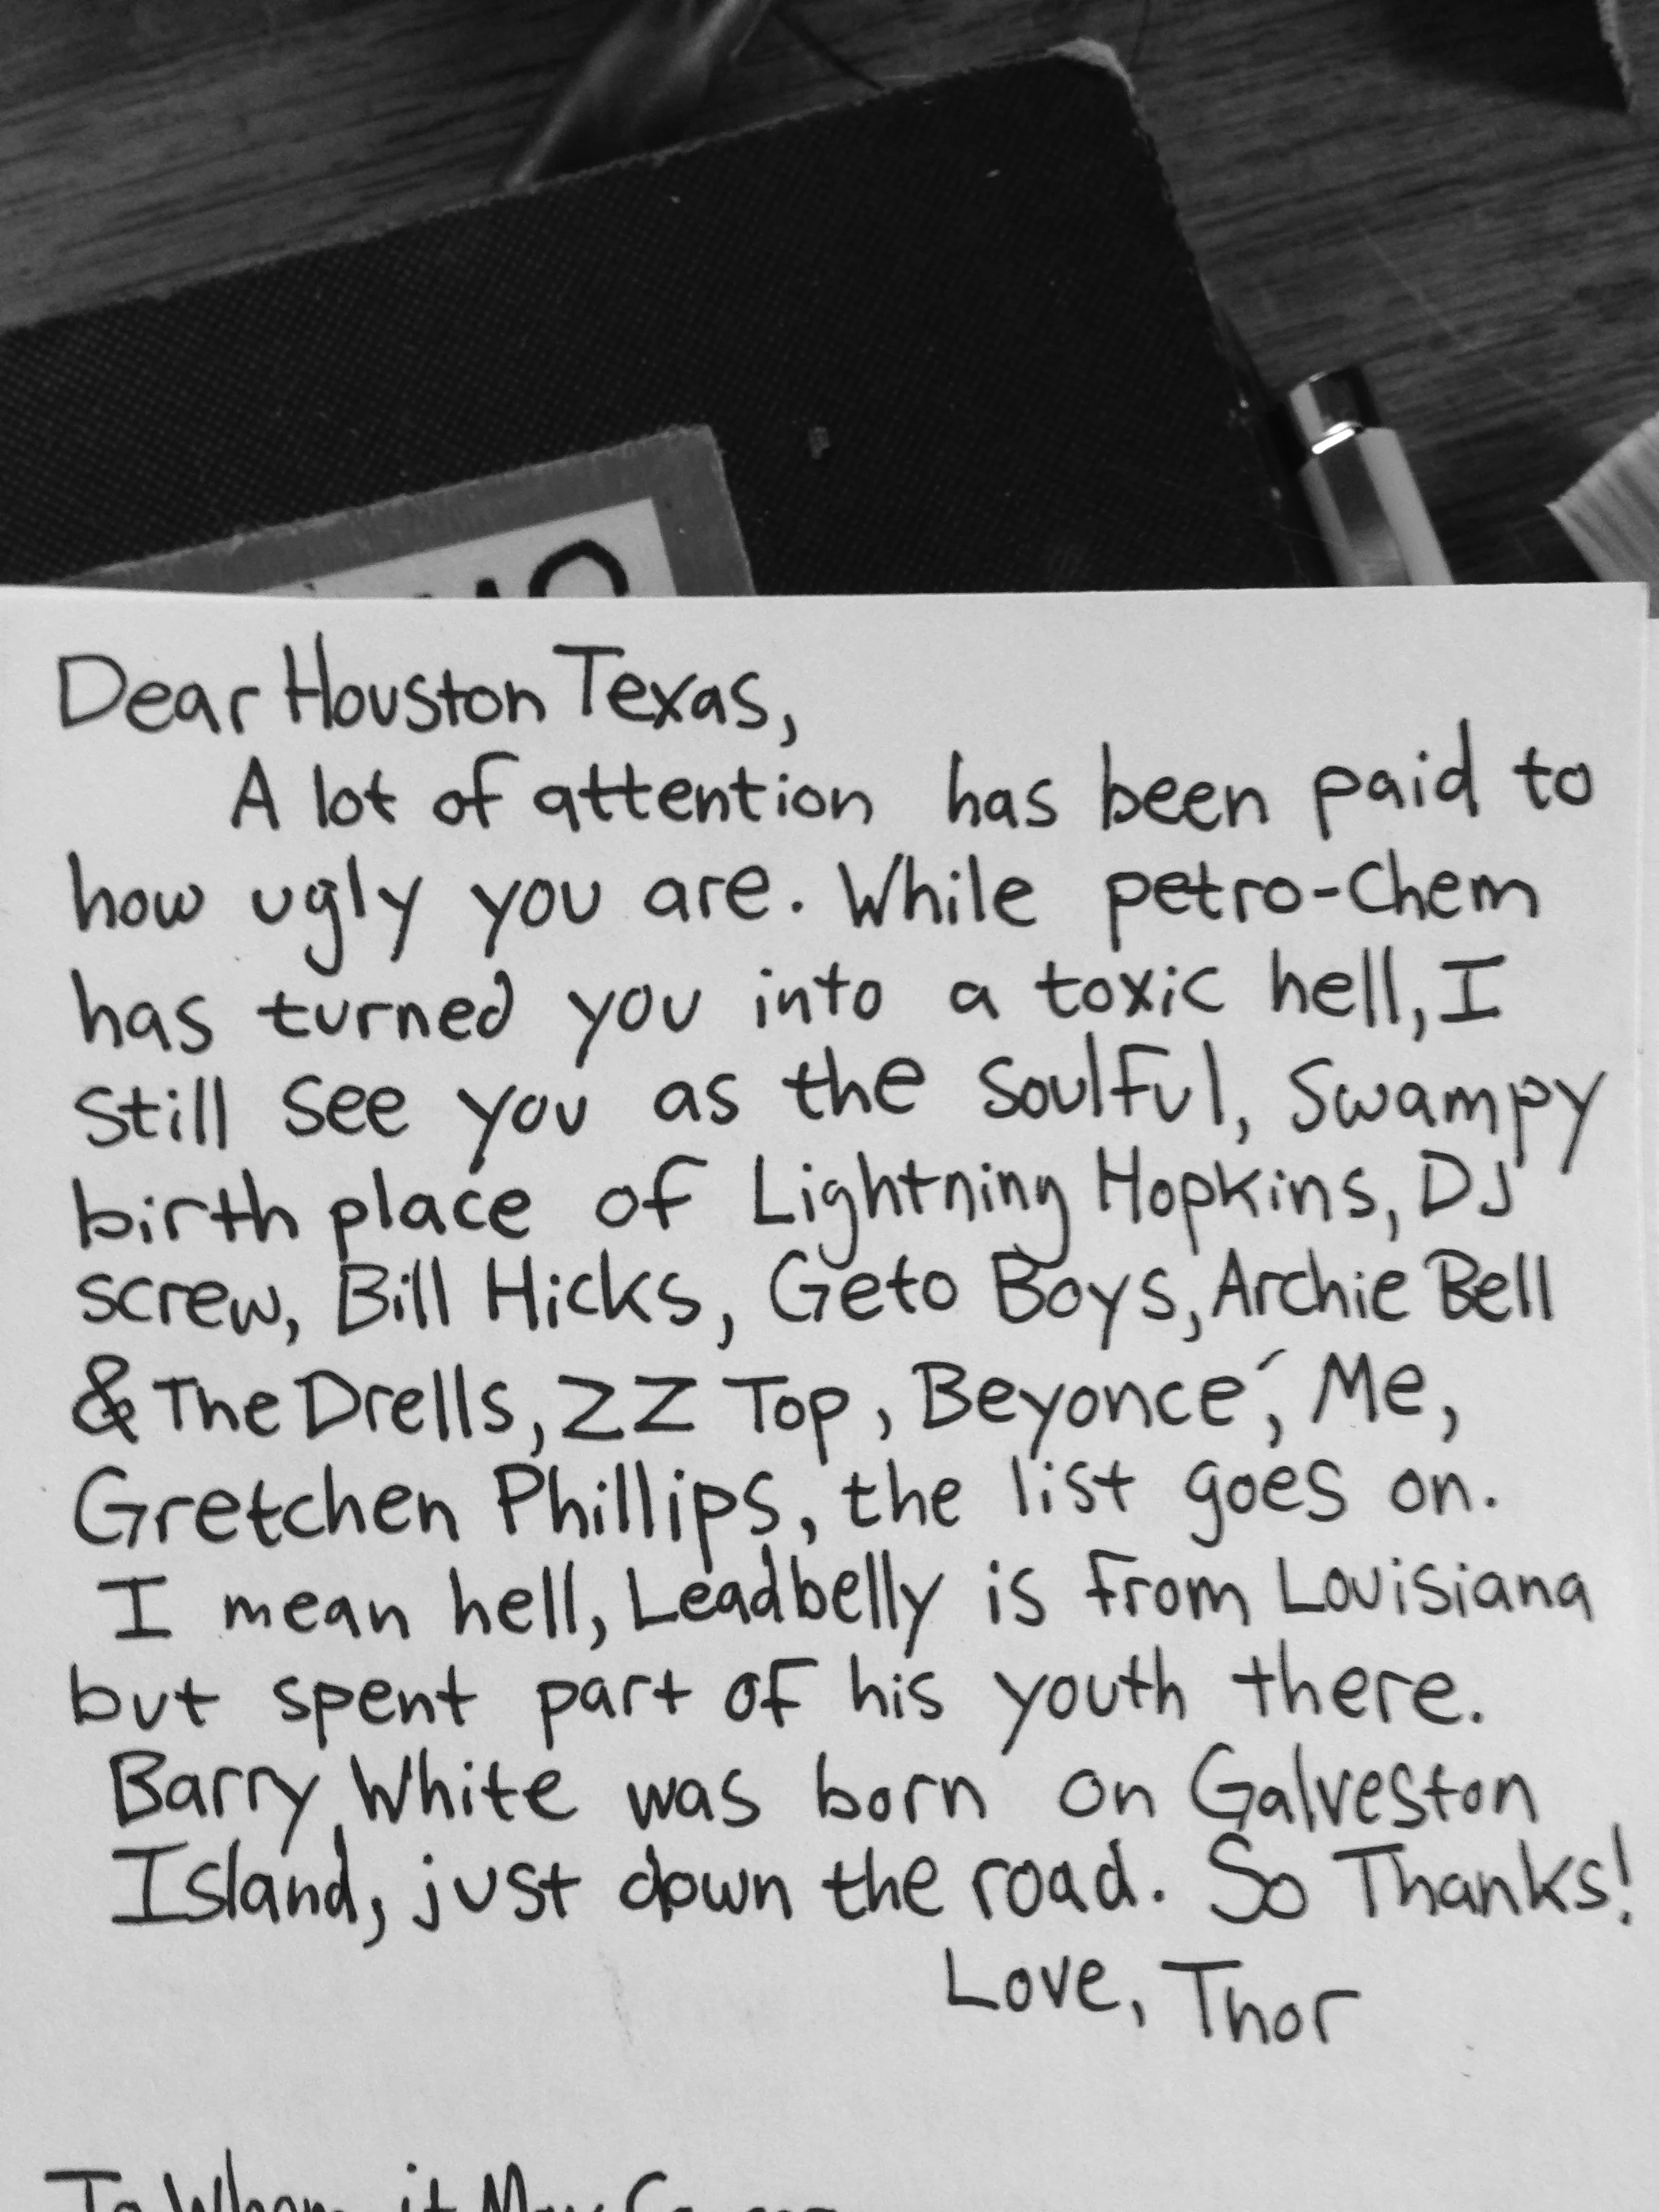 Dear Houston Texas,
A lot of attention has been paid to
how ugly you are. While petro-chem
has turned you into a toxic hell, I
still see you as the soulful, swampy
birth place of Lightning Hopkins, DJ
screw, Bill Hicks, Geto Boys, Archie Bell
& The Drells, ZZ Top, Beyoncé, Me,
Gretchen Phillips, the list goes on.
I mean hell, Leadbelly is from Louisiana
but spent part of his youth there.
Barry White was born on Galveston
Island, just down the road. So Thanks!
Love, Thor
To Whom it May